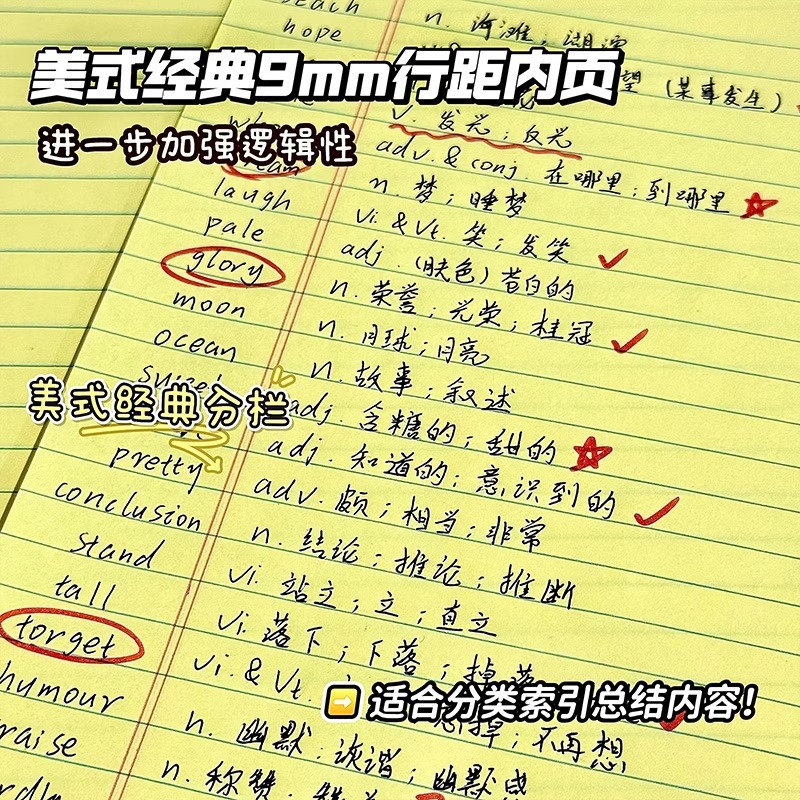 hope
美式经典9mm行距内页
望（某事发生）
v. 发光；反光
进一步加强逻辑性
adv. & conj. 在哪里；到哪里
n. 梦；睡梦
laugh vi. & vt. 笑；发笑
pale adj. (肤色) 苍白的
glory n. 荣誉；光荣；桂冠
moon n. 月球；月亮
ocean n. 故事；叙述
adj. 含糖的；甜的
美式经典分栏
adj. 知道的；意识到的
pretty adv. 颇；相当；非常
conclusion n. 结论；推论；推断
stand vi. 站立；立；直立
tall vi. 落下；下落；掉落
torget vi. & vt.
适合分类索引总结内容！
掉；不再想
humour n. 幽默；诙谐；幽默感
n. 称赞；